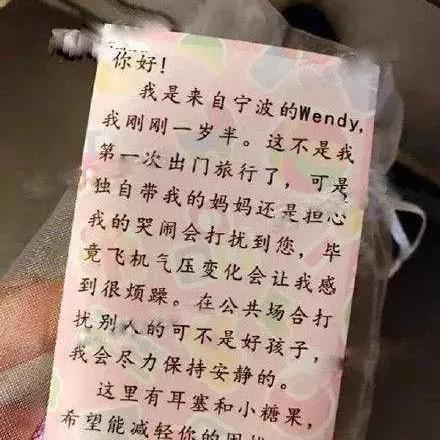 你好!
我是来自宁波的Wendy,
我刚刚一岁半。这不是我
第一次出门旅行了,可是,
独自带我的妈妈还是担心
我的哭闹会打扰到您,毕
竟飞机气压变化会让我感
到很烦躁。在公共场合打
扰别人的可不是好孩子,
我会尽力保持安静的。
这里有耳塞和小糖果,
希望能减轻你的困扰